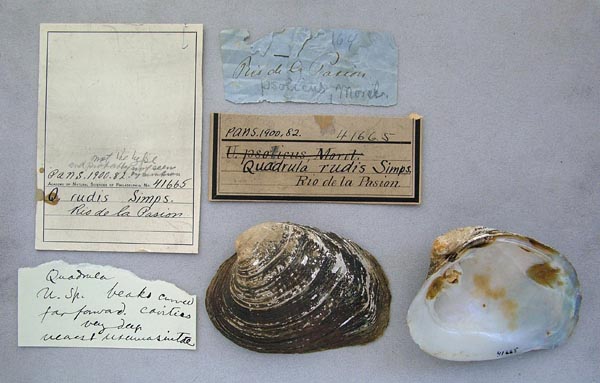 not the type
PANS.1900.82.
ACADEMY OF NATURAL SCIENCES OF PHILADELPHIA, NO. 41665
Q. rudis Simps.
Rio de la Pasion
164
Rio de la Pasion
psolicus, Morit.
PANS.1900,82. 41665
U. psolicus, Morit.
Quadrula rudis Simps.
Rio de la Pasion.
Quadrula
N. Sp. beaks curved
far forward. cavities
very deep
nearest
41665